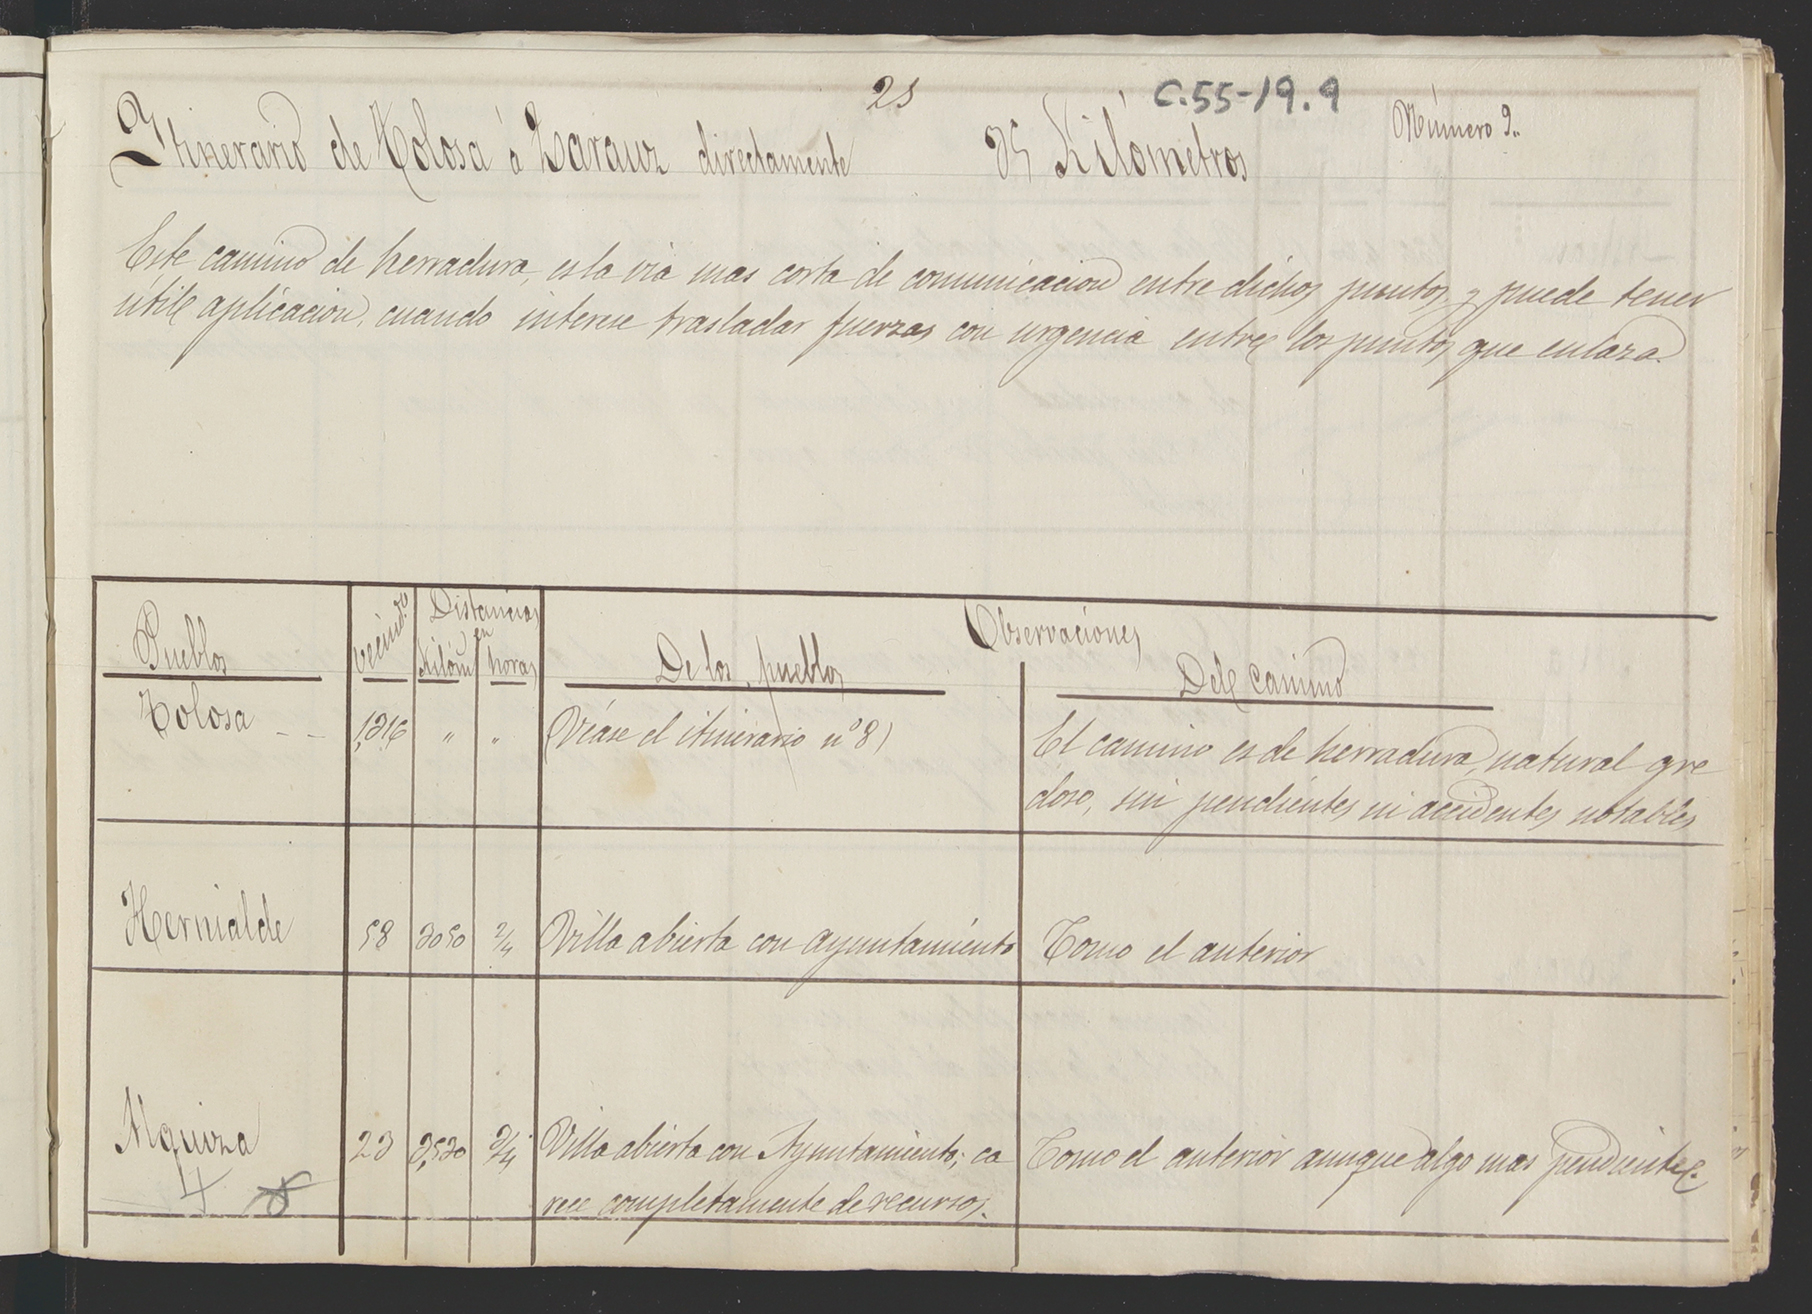 25
C.55-19.9
Número 9.
Itinerario de Tolosa á Zarauz directamente 35 Kilómetros
Este camino de herradura, es la via mas corta de comunicacion entre dichos puntos, y puede tener
útil aplicacion, cuando interese trasladar fuerzas con urgencia entre los puntos que enlaza.
Pueblos
vecind.º
Distancias
en
Kilóm
horas
Observaciones
De los pueblos
Del camino
Tolosa -- 1,316 " " (Véase el itinerario nº 8)
El camino es de herradura, natural gre
doso, sin pendientes ni accidentes notables
Hernialde 58 3050 2/4 Villa abierta con ayuntamiento Como el anterior
Alquiza 23 3,530 3/4 Villa abierta con Ayuntamiento; ca Como el anterior aunque algo mas pendiente.
rece completamente de recursos.
4